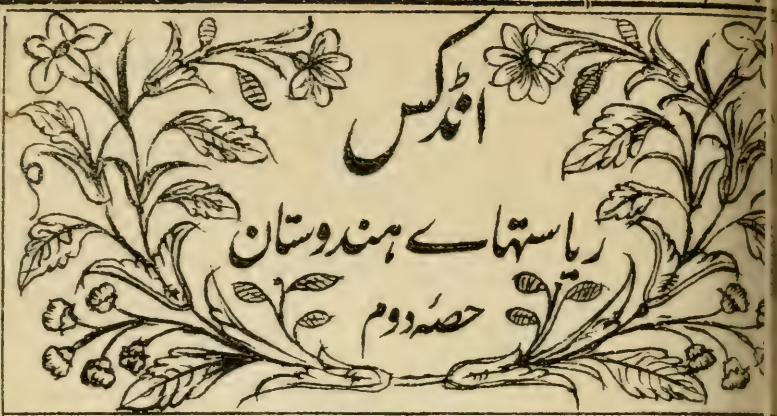 انڈکس
ریاستہاے ہندوستان
حصہٴ دوم